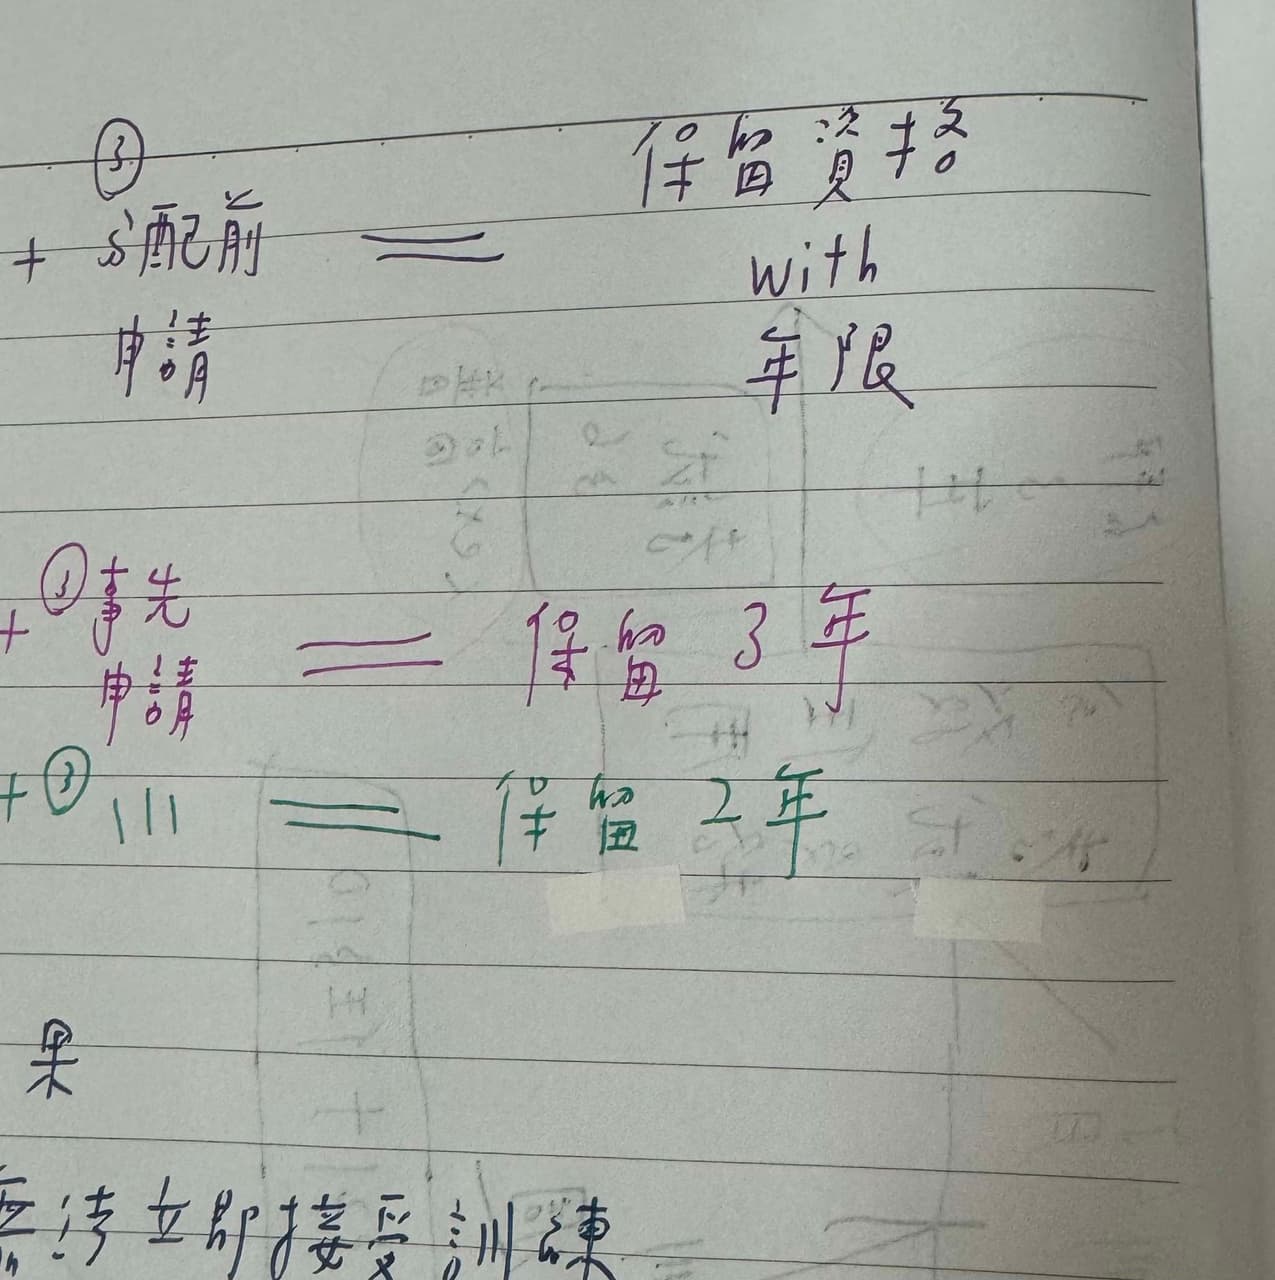 ③ 保留資格
+ 分配前 = with
申請 年限
+ ③ 事先 = 保留 3 年
申請
+ ③ 〃 = 保留 2 年
果
無法立即接受訓練